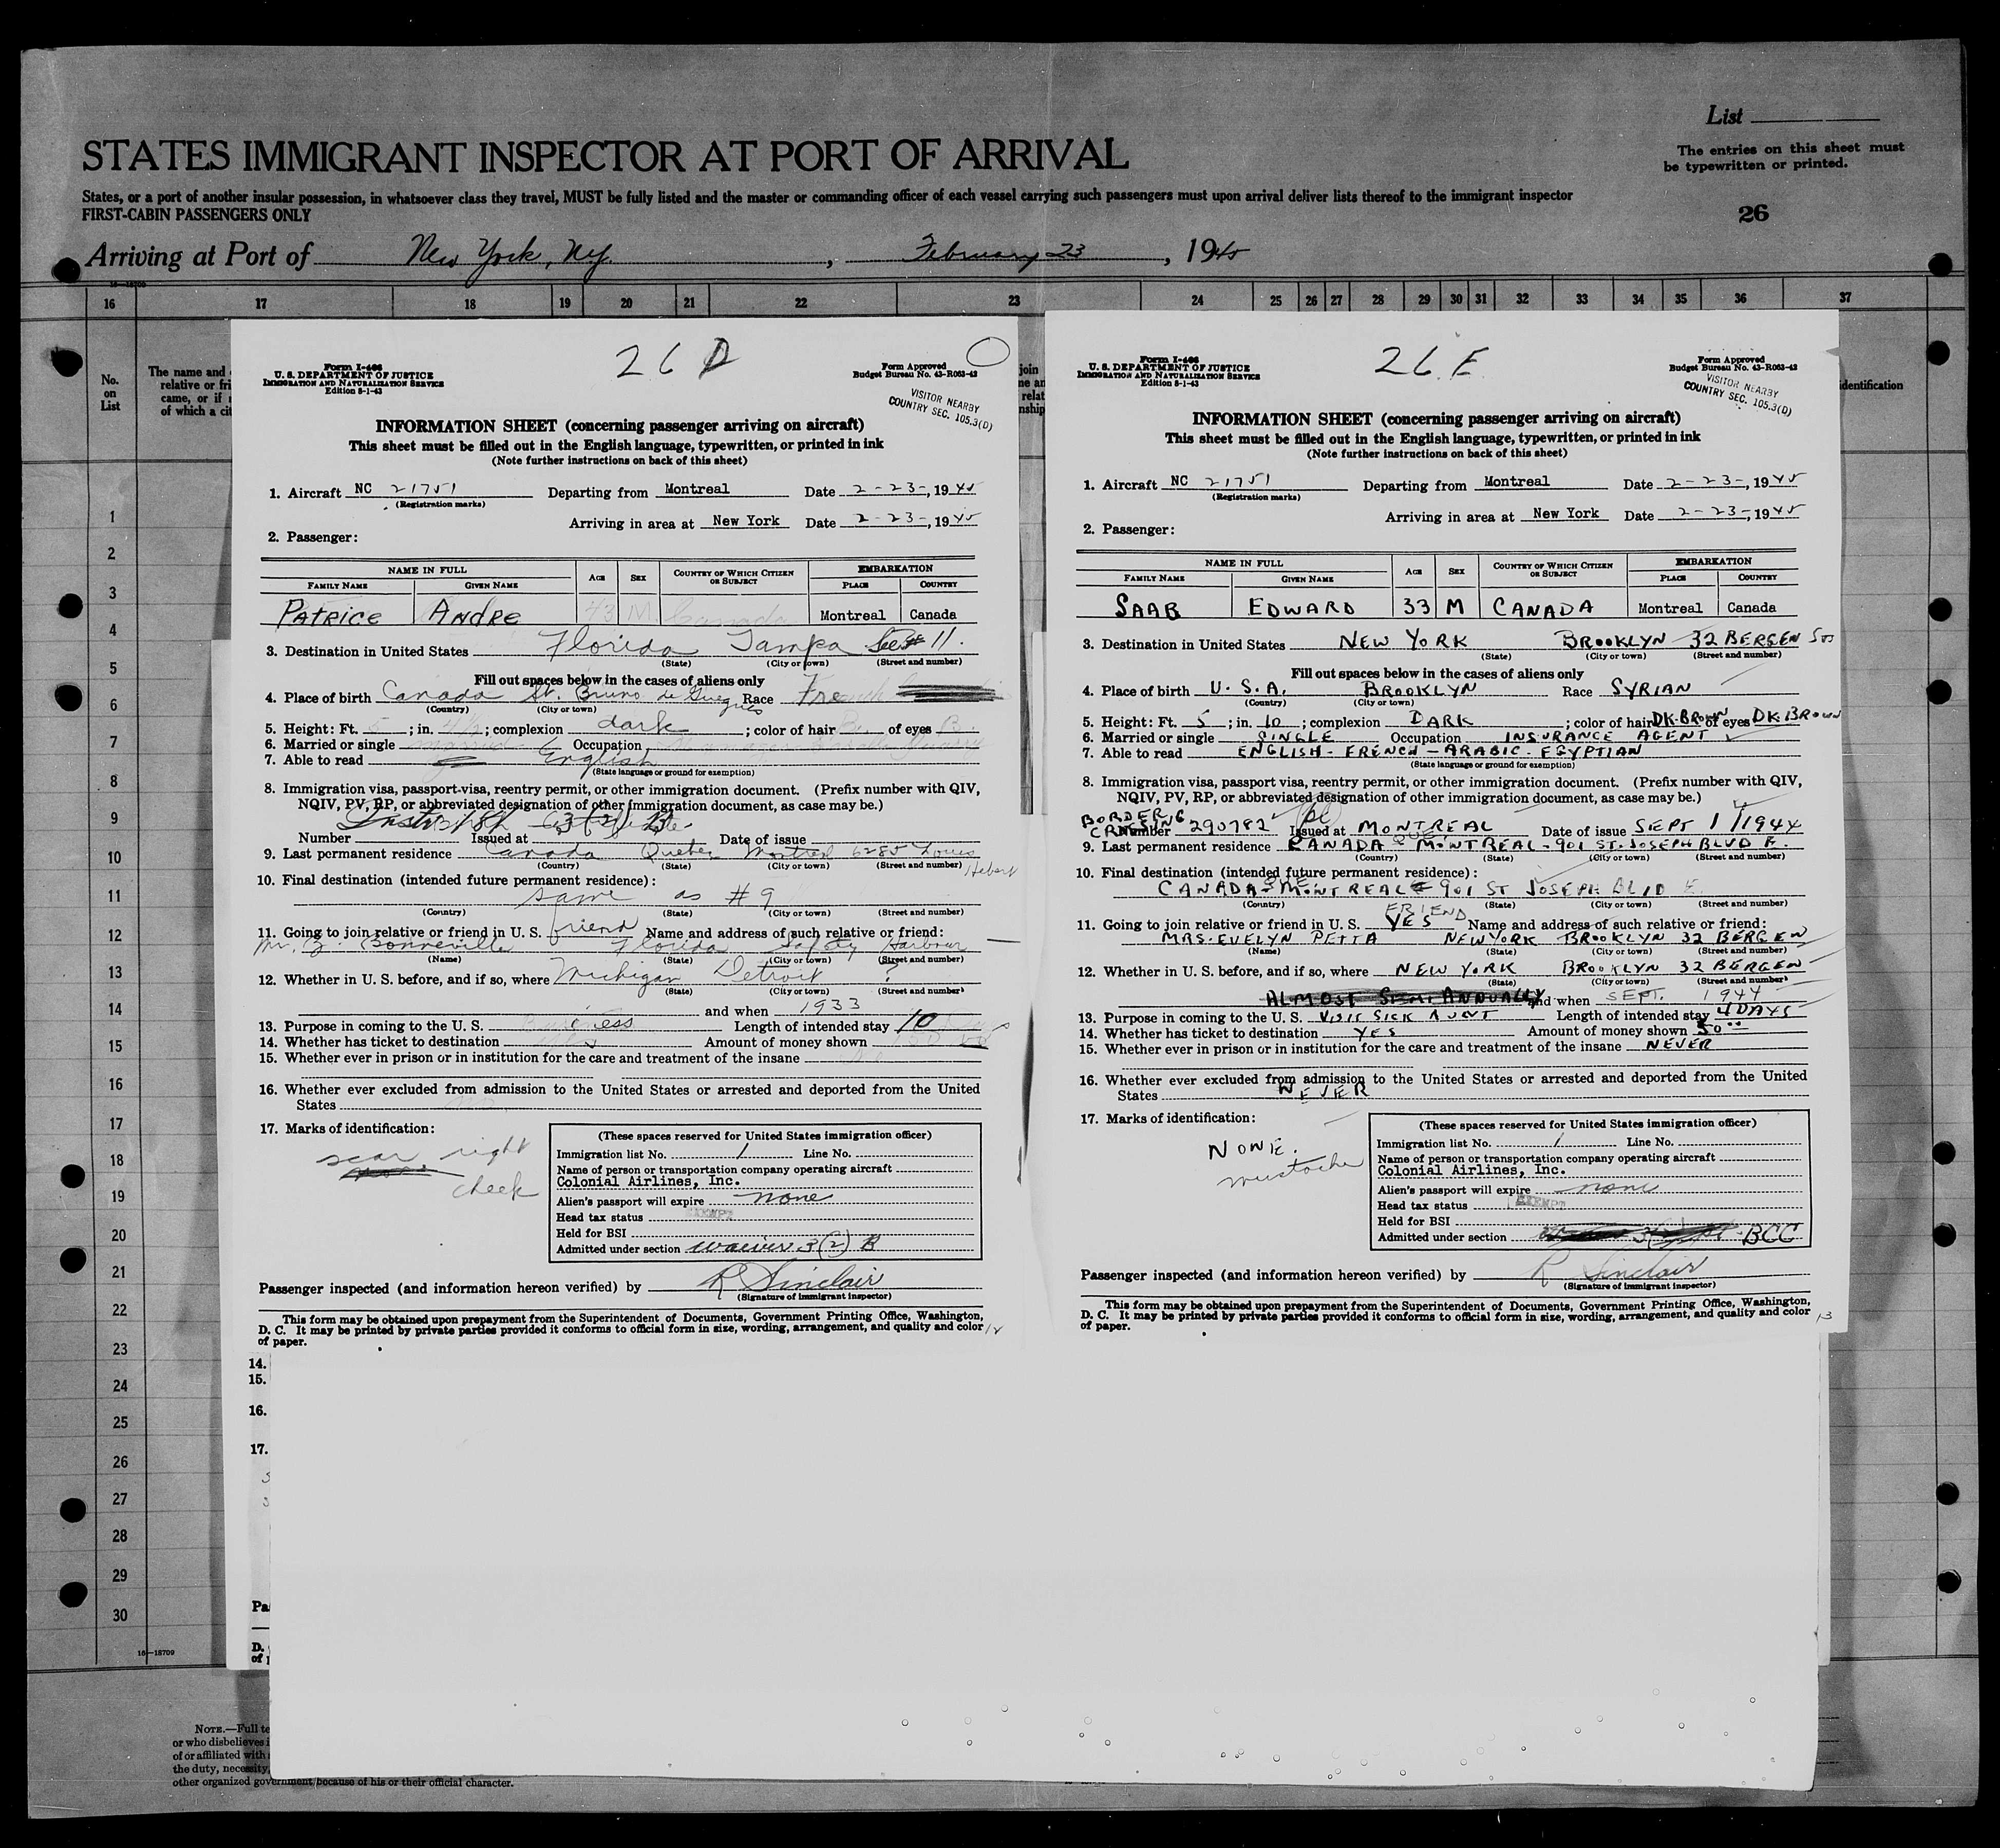 List
STATES IMMIGRANT INSPECTOR AT PORT OF ARRIVAL
The entries on this sheet must
be typewritten or printed.
States, or a port of another insular possession, in whatsoever class they travel, MUST be fully listed and the master or commanding officer of each vessel carrying such passengers must upon arrival deliver lists thereof to the immigrant inspector
FIRST-CABIN PASSENGERS ONLY
26
Arriving at Port of New York, Ny. , February 23 , 1945
16 17 18 19 20 21 22 23 24 25 26 27 28 29 30 31 32 33 34 35 36 37
No.
on
List
The name and
relative or fri
came, or if
of which a cit
join
relat
nship
identification
1
2
3
4
5
6
7
8
9
10
11
12
13
14
15
16
17
18
19
20
21
22
23
24
25
26
27
28
29
30
26 D
Form I-466
U. S. DEPARTMENT OF JUSTICE
IMMIGRATION AND NATURALIZATION SERVICE
Edition 8-1-43
Form Approved
Budget Bureau No. 43-R063-42
VISITOR NEARBY
COUNTRY SEC. 105.3(D)
INFORMATION SHEET (concerning passenger arriving on aircraft)
This sheet must be filled out in the English language, typewritten, or printed in ink
(Note further instructions on back of this sheet)
1. Aircraft NC 21751 Departing from Montreal Date 2-23-, 1945
(Registration marks)
Arriving in area at New York Date 2-23-, 1945
2. Passenger:
NAME IN FULL AGE SEX COUNTRY OF WHICH CITIZEN OR SUBJECT EMBARKATION
FAMILY NAME GIVEN NAME PLACE COUNTRY
PATRICE ANDRE 43 M. Canada Montreal Canada
3. Destination in United States Florida Tampa See # 11.
(State) (City or town) (Street and number)
Fill out spaces below in the cases of aliens only
4. Place of birth Canada St. Bruno de Guigues Race French
(Country) (City or town)
5. Height: Ft. 5 ; in. 4½ ; complexion dark ; color of hair Br of eyes B
6. Married or single married Occupation
7. Able to read English
(State language or ground for exemption)
8. Immigration visa, passport visa, reentry permit, or other immigration document. (Prefix number with QIV,
NQIV, PV, RP, or abbreviated designation of other immigration document, as case may be.)
3(2) B
Number Issued at Date of issue
9. Last permanent residence Canada Quebec Montreal 6285 Louis Hebert
(Country) (State) (City or town) (Street and number)
10. Final destination (intended future permanent residence):
same as # 9
(Country) (State) (City or town) (Street and number)
11. Going to join relative or friend in U. S. friend Name and address of such relative or friend:
Mr. Z. Bonneville Florida Safety Harbour
(Name) (State) (City or town) (Street and number)
12. Whether in U. S. before, and if so, where Michigan Detroit ?
(State) (City or town) (Street and number)
and when 1933
13. Purpose in coming to the U. S. Business Length of intended stay 10
14. Whether has ticket to destination Amount of money shown
15. Whether ever in prison or in institution for the care and treatment of the insane
16. Whether ever excluded from admission to the United States or arrested and deported from the United
States no
17. Marks of identification:
scar right
cheek
(These spaces reserved for United States immigration officer)
Immigration list No. 1 Line No.
Name of person or transportation company operating aircraft
Colonial Airlines, Inc.
Alien's passport will expire none
Head tax status EXEMPT
Held for BSI
Admitted under section waiver 3(2) B
Passenger inspected (and information hereon verified) by R Sinclair
(Signature of immigrant inspector)
This form may be obtained upon prepayment from the Superintendent of Documents, Government Printing Office, Washington,
D. C. It may be printed by private parties provided it conforms to official form in size, wording, arrangement, and quality and color
of paper.
12
26 E
Form I-466
U. S. DEPARTMENT OF JUSTICE
IMMIGRATION AND NATURALIZATION SERVICE
Edition 8-1-43
Form Approved
Budget Bureau No. 43-R063-42
VISITOR NEARBY
COUNTRY SEC. 105.3(D)
INFORMATION SHEET (concerning passenger arriving on aircraft)
This sheet must be filled out in the English language, typewritten, or printed in ink
(Note further instructions on back of this sheet)
1. Aircraft NC 21751 Departing from Montreal Date 2-23-, 1945
(Registration marks)
Arriving in area at New York Date 2-23-, 1945
2. Passenger:
NAME IN FULL AGE SEX COUNTRY OF WHICH CITIZEN OR SUBJECT EMBARKATION
FAMILY NAME GIVEN NAME PLACE COUNTRY
SAAB EDWARD 33 M CANADA Montreal Canada
3. Destination in United States NEW YORK BROOKLYN 32 BERGEN
(State) (City or town) (Street and number)
Fill out spaces below in the cases of aliens only
4. Place of birth U. S. A. BROOKLYN Race SYRIAN
(Country) (City or town)
5. Height: Ft. 5 ; in. 10 ; complexion DARK ; color of hair DK-BROWN of eyes DK BROWN
6. Married or single SINGLE Occupation INSURANCE AGENT
7. Able to read ENGLISH - FRENCH - ARABIC - EGYPTIAN
(State language or ground for exemption)
8. Immigration visa, passport visa, reentry permit, or other immigration document. (Prefix number with QIV,
NQIV, PV, RP, or abbreviated designation of other immigration document, as case may be.)
BORDER CROSSING
Number 290782 Issued at MONTREAL Date of issue SEPT 1 / 1944
9. Last permanent residence CANADA QUE. MONTREAL - 901 ST. JOSEPH BLVD E.
(Country) (State) (City or town) (Street and number)
10. Final destination (intended future permanent residence):
CANADA - MONTREAL 901 ST JOSEPH BLVD E.
(Country) (State) (City or town) (Street and number)
11. Going to join relative or friend in U. S. FRIEND YES Name and address of such relative or friend:
MRS. EVELYN PETTA NEW YORK BROOKLYN 32 BERGEN
(Name) (State) (City or town) (Street and number)
12. Whether in U. S. before, and if so, where NEW YORK BROOKLYN 32 BERGEN
(State) (City or town) (Street and number)
ALMOST SEMI ANNUALLY and when SEPT. 1944
13. Purpose in coming to the U. S. VISIT SICK AUNT Length of intended stay 4 DAYS
14. Whether has ticket to destination YES Amount of money shown 50 00
15. Whether ever in prison or in institution for the care and treatment of the insane NEVER
16. Whether ever excluded from admission to the United States or arrested and deported from the United
States NEVER
17. Marks of identification:
NONE.
mustache
(These spaces reserved for United States immigration officer)
Immigration list No. 1 Line No.
Name of person or transportation company operating aircraft
Colonial Airlines, Inc.
Alien's passport will expire none
Head tax status EXEMPT
Held for BSI
Admitted under section BCC
Passenger inspected (and information hereon verified) by R Sinclair
(Signature of immigrant inspector)
This form may be obtained upon prepayment from the Superintendent of Documents, Government Printing Office, Washington,
D. C. It may be printed by private parties provided it conforms to official form in size, wording, arrangement, and quality and color
of paper.
13
14.
15.
16.
17.
Pa
D.
of
16—18709
NOTE.—Full te
or who disbelieves i
of or affiliated with
the duty, necessity,
other organized government because of his or their official character.